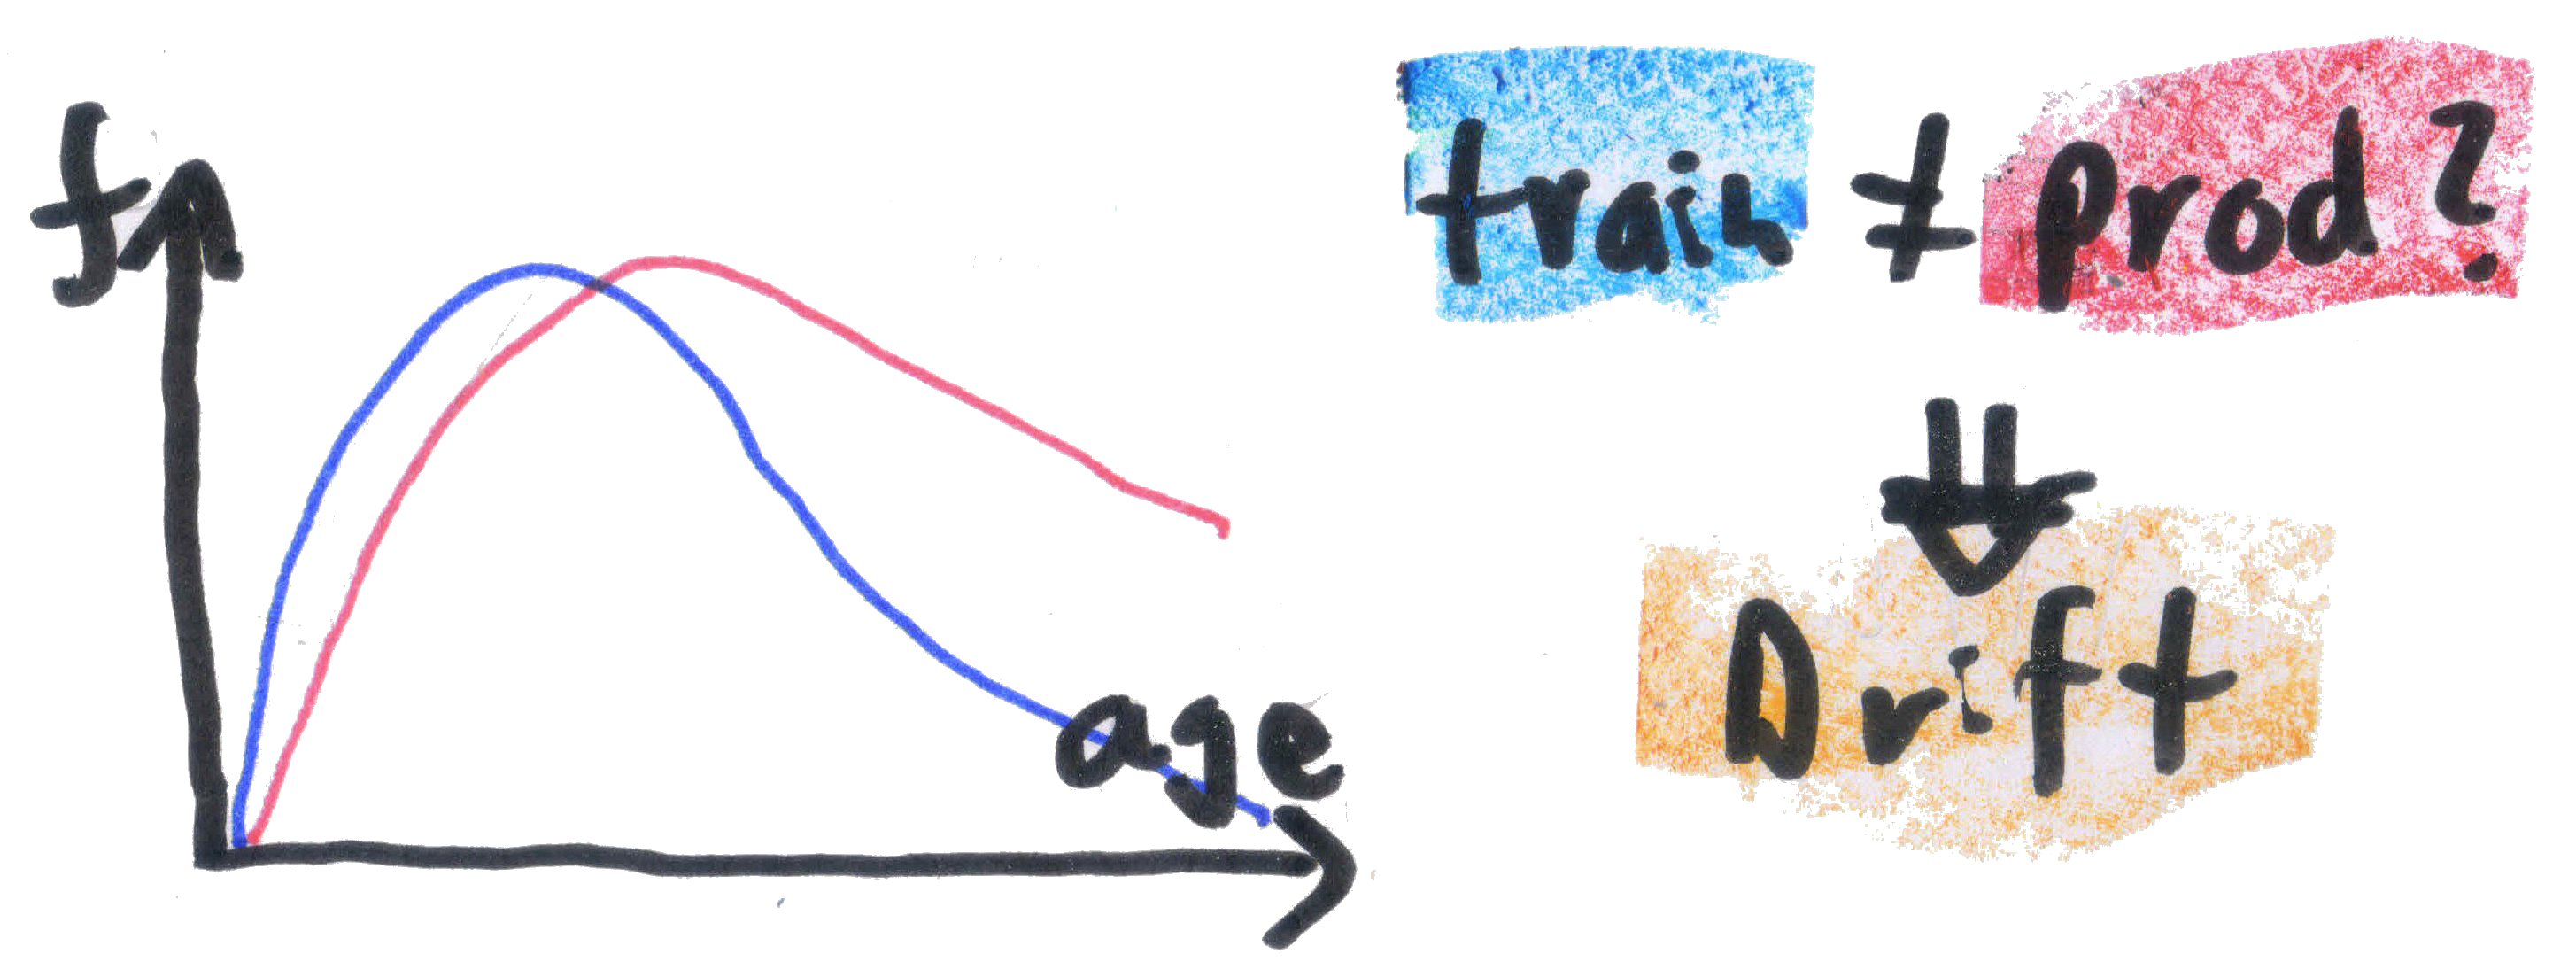 f
age
train ≠ prod ?
⇓
Drift